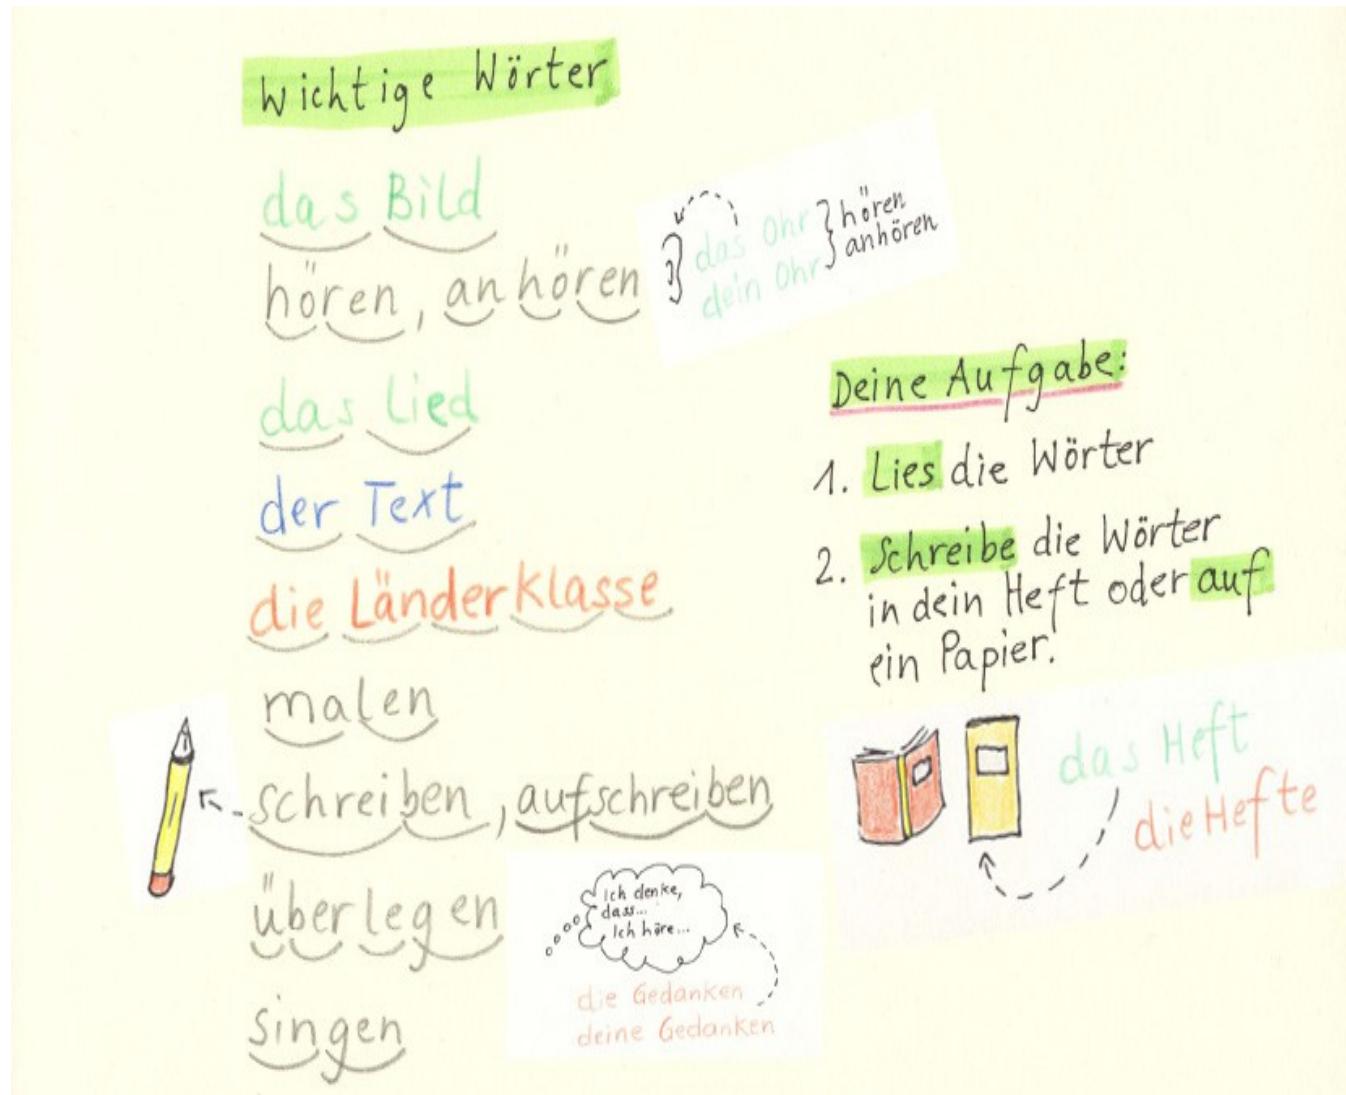 Wichtige Wörter
das Bild
hören, anhören
das Ohr } hören
dein Ohr } anhören
das Lied
der Text
die Länderklasse
malen
schreiben, aufschreiben
überlegen
Ich denke,
dass...
Ich höre...
die Gedanken
deine Gedanken
singen
Deine Aufgabe:
1. Lies die Wörter
2. Schreibe die Wörter
in dein Heft oder auf
ein Papier.
das Heft
die Hefte